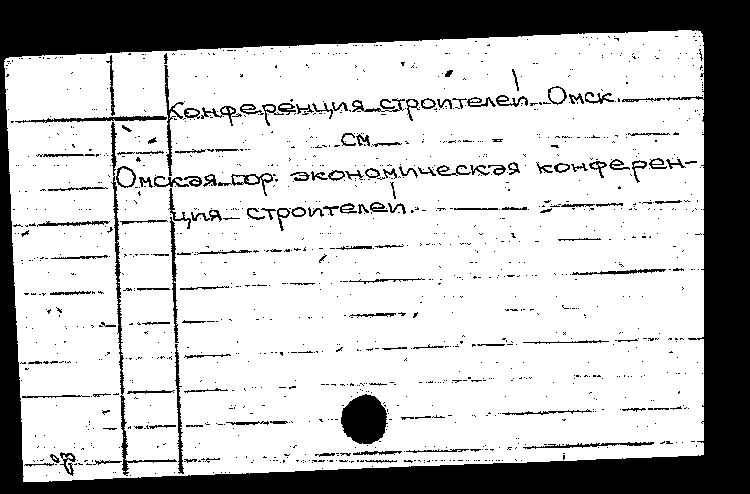 Конференция строителей. Омск.
см.
Омская гор. экономическая конферен-
ция строителей.